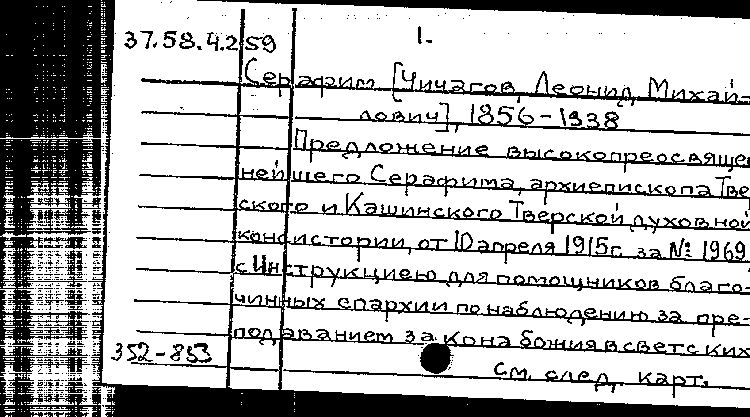 37.58.4.259 1.
Серафим [Чичагов, Леонид Михай-
лович], 1856-1938
Предложение высокопреосвящен
нейшего Серафима, архиепископа Твер
ского и Кашинского Тверской духовной
консистории, от 10 апреля 1915г. за № 1969
с Инструкциею для помощников благо-
чинных епархии по наблюдению за пре-
подаванием закона божия в светских
352-853 См. след. карт.